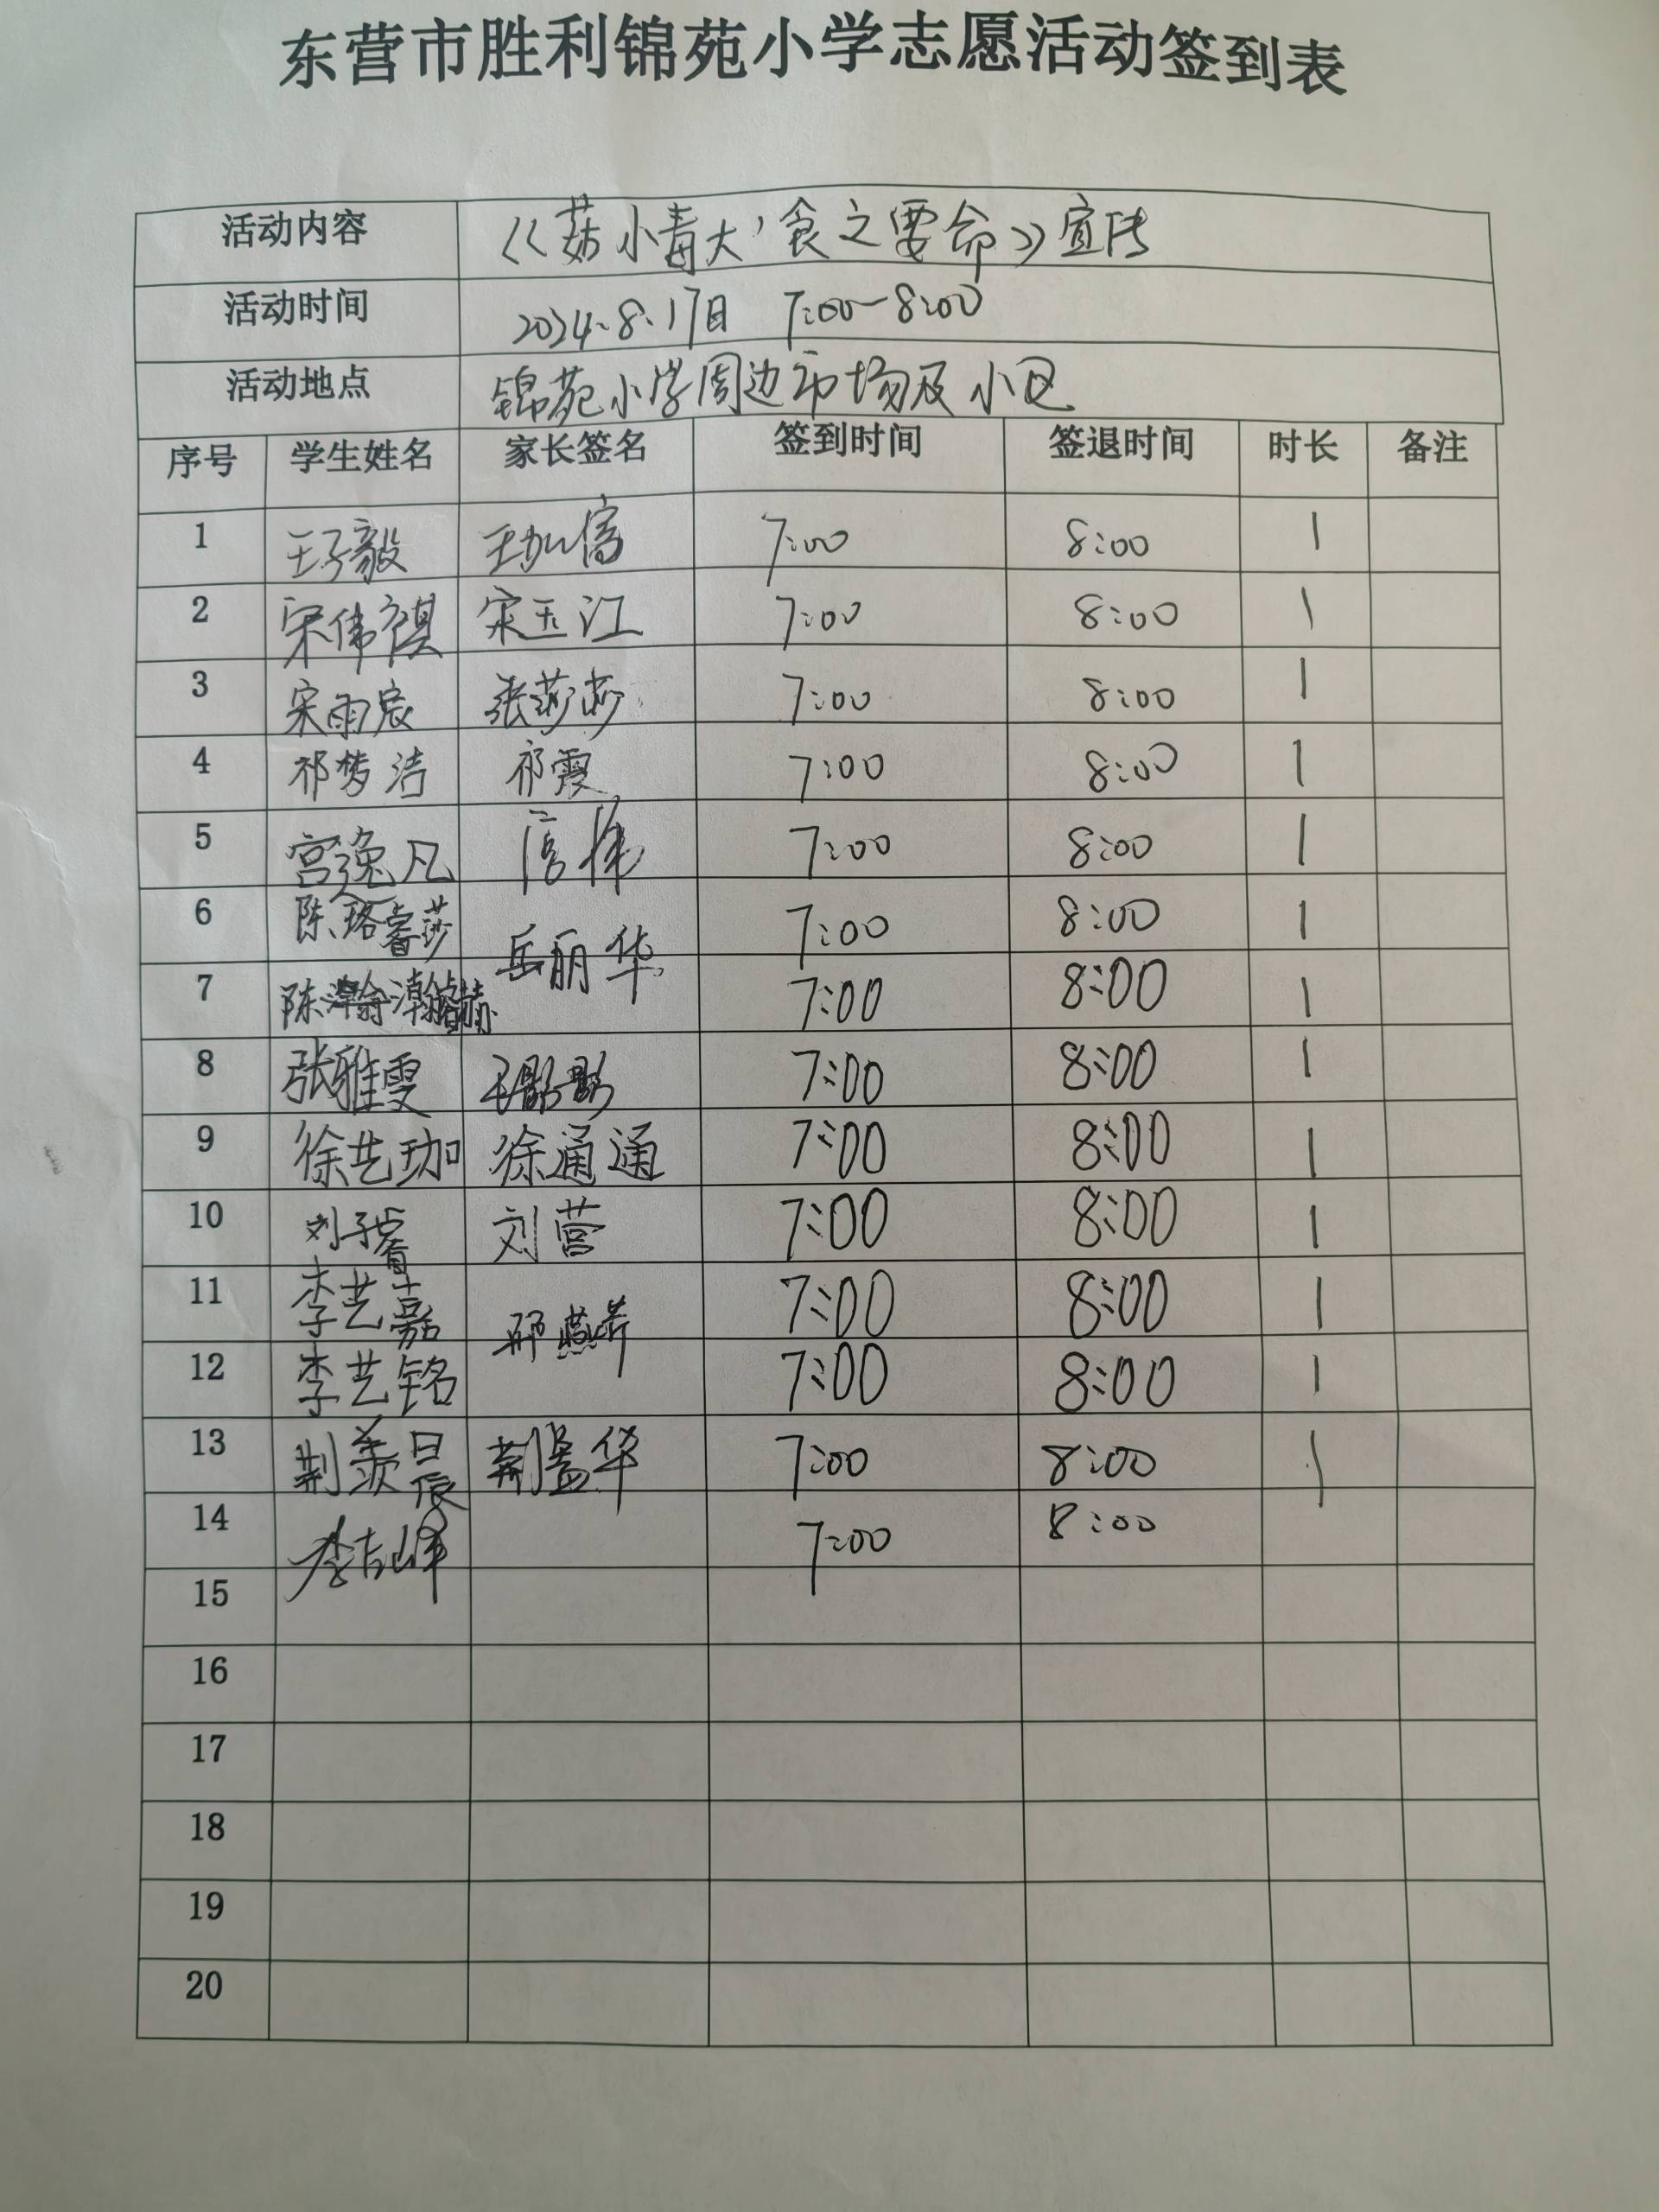 东营市胜利锦苑小学志愿活动签到表
活动内容 《菇小毒大，食之要命》宣传
活动时间 2024.8.17日 7:00-8:00
活动地点 锦苑小学周边市场及小区
序号 学生姓名 家长签名 签到时间 签退时间 时长 备注
1 王子毅 7:00 8:00 1
2 宋伟祺 宋玉江 7:00 8:00 1
3 宋雨宸 张莎莎 7:00 8:00 1
4 祁梦洁 祁霞 7:00 8:00 1
5 宫逸凡 7:00 8:00 1
6 陈珞睿莎 岳丽华 7:00 8:00 1
7 陈瀚 7:00 8:00 1
8 张雅雯 7:00 8:00 1
9 徐艺珈 徐通通 7:00 8:00 1
10 刘子睿 刘营 7:00 8:00 1
11 李艺嘉 7:00 8:00 1
12 李艺铭 7:00 8:00 1
13 荆羡晨 荆孟华 7:00 8:00 1
14 7:00 8:00
15
16
17
18
19
20